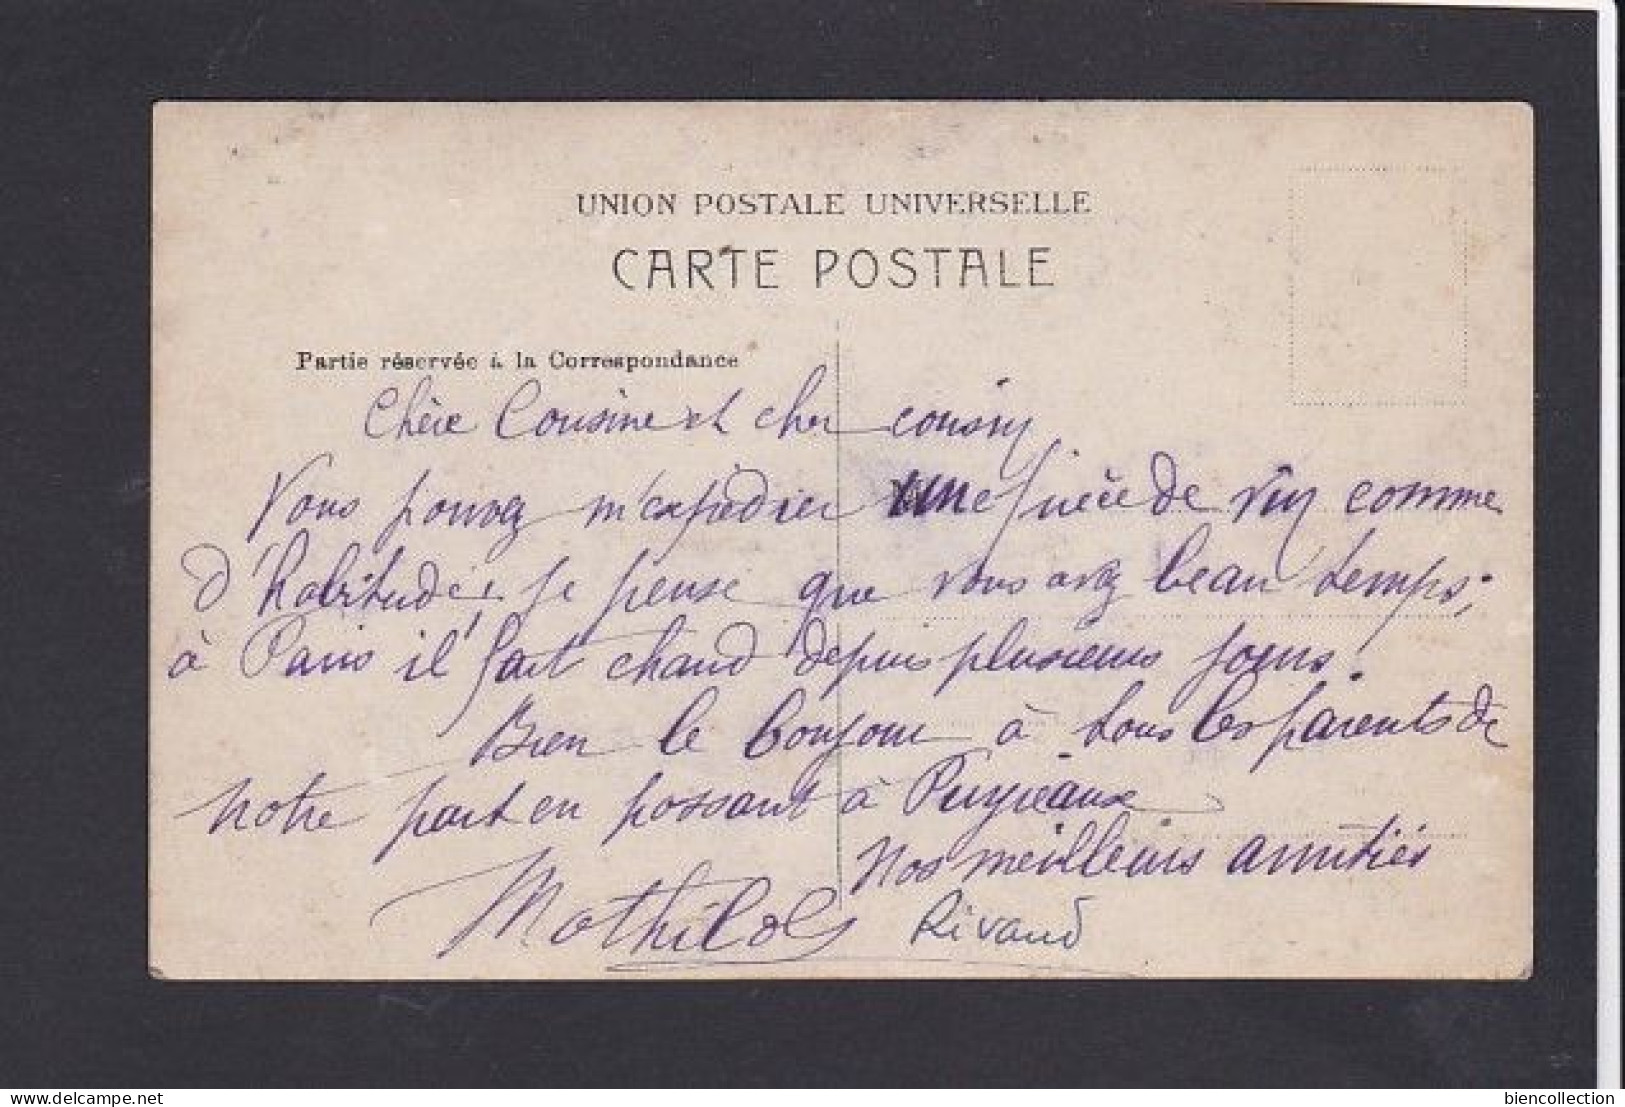 UNION POSTALE UNIVERSELLE
CARTE POSTALE
Partie réservée à la Correspondance
Chère Cousine et cher cousin
Vous pouvez m'expédier une pièce de vin comme
d'habitude, je pense que vous avez beau temps;
à Paris il fait chaud depuis plusieurs jours.
Bien le bonjour à tous les parents de
notre part en passant à
Nos meilleurs amitiés
Mathilde Rivaud
delcampe.net
biencollection